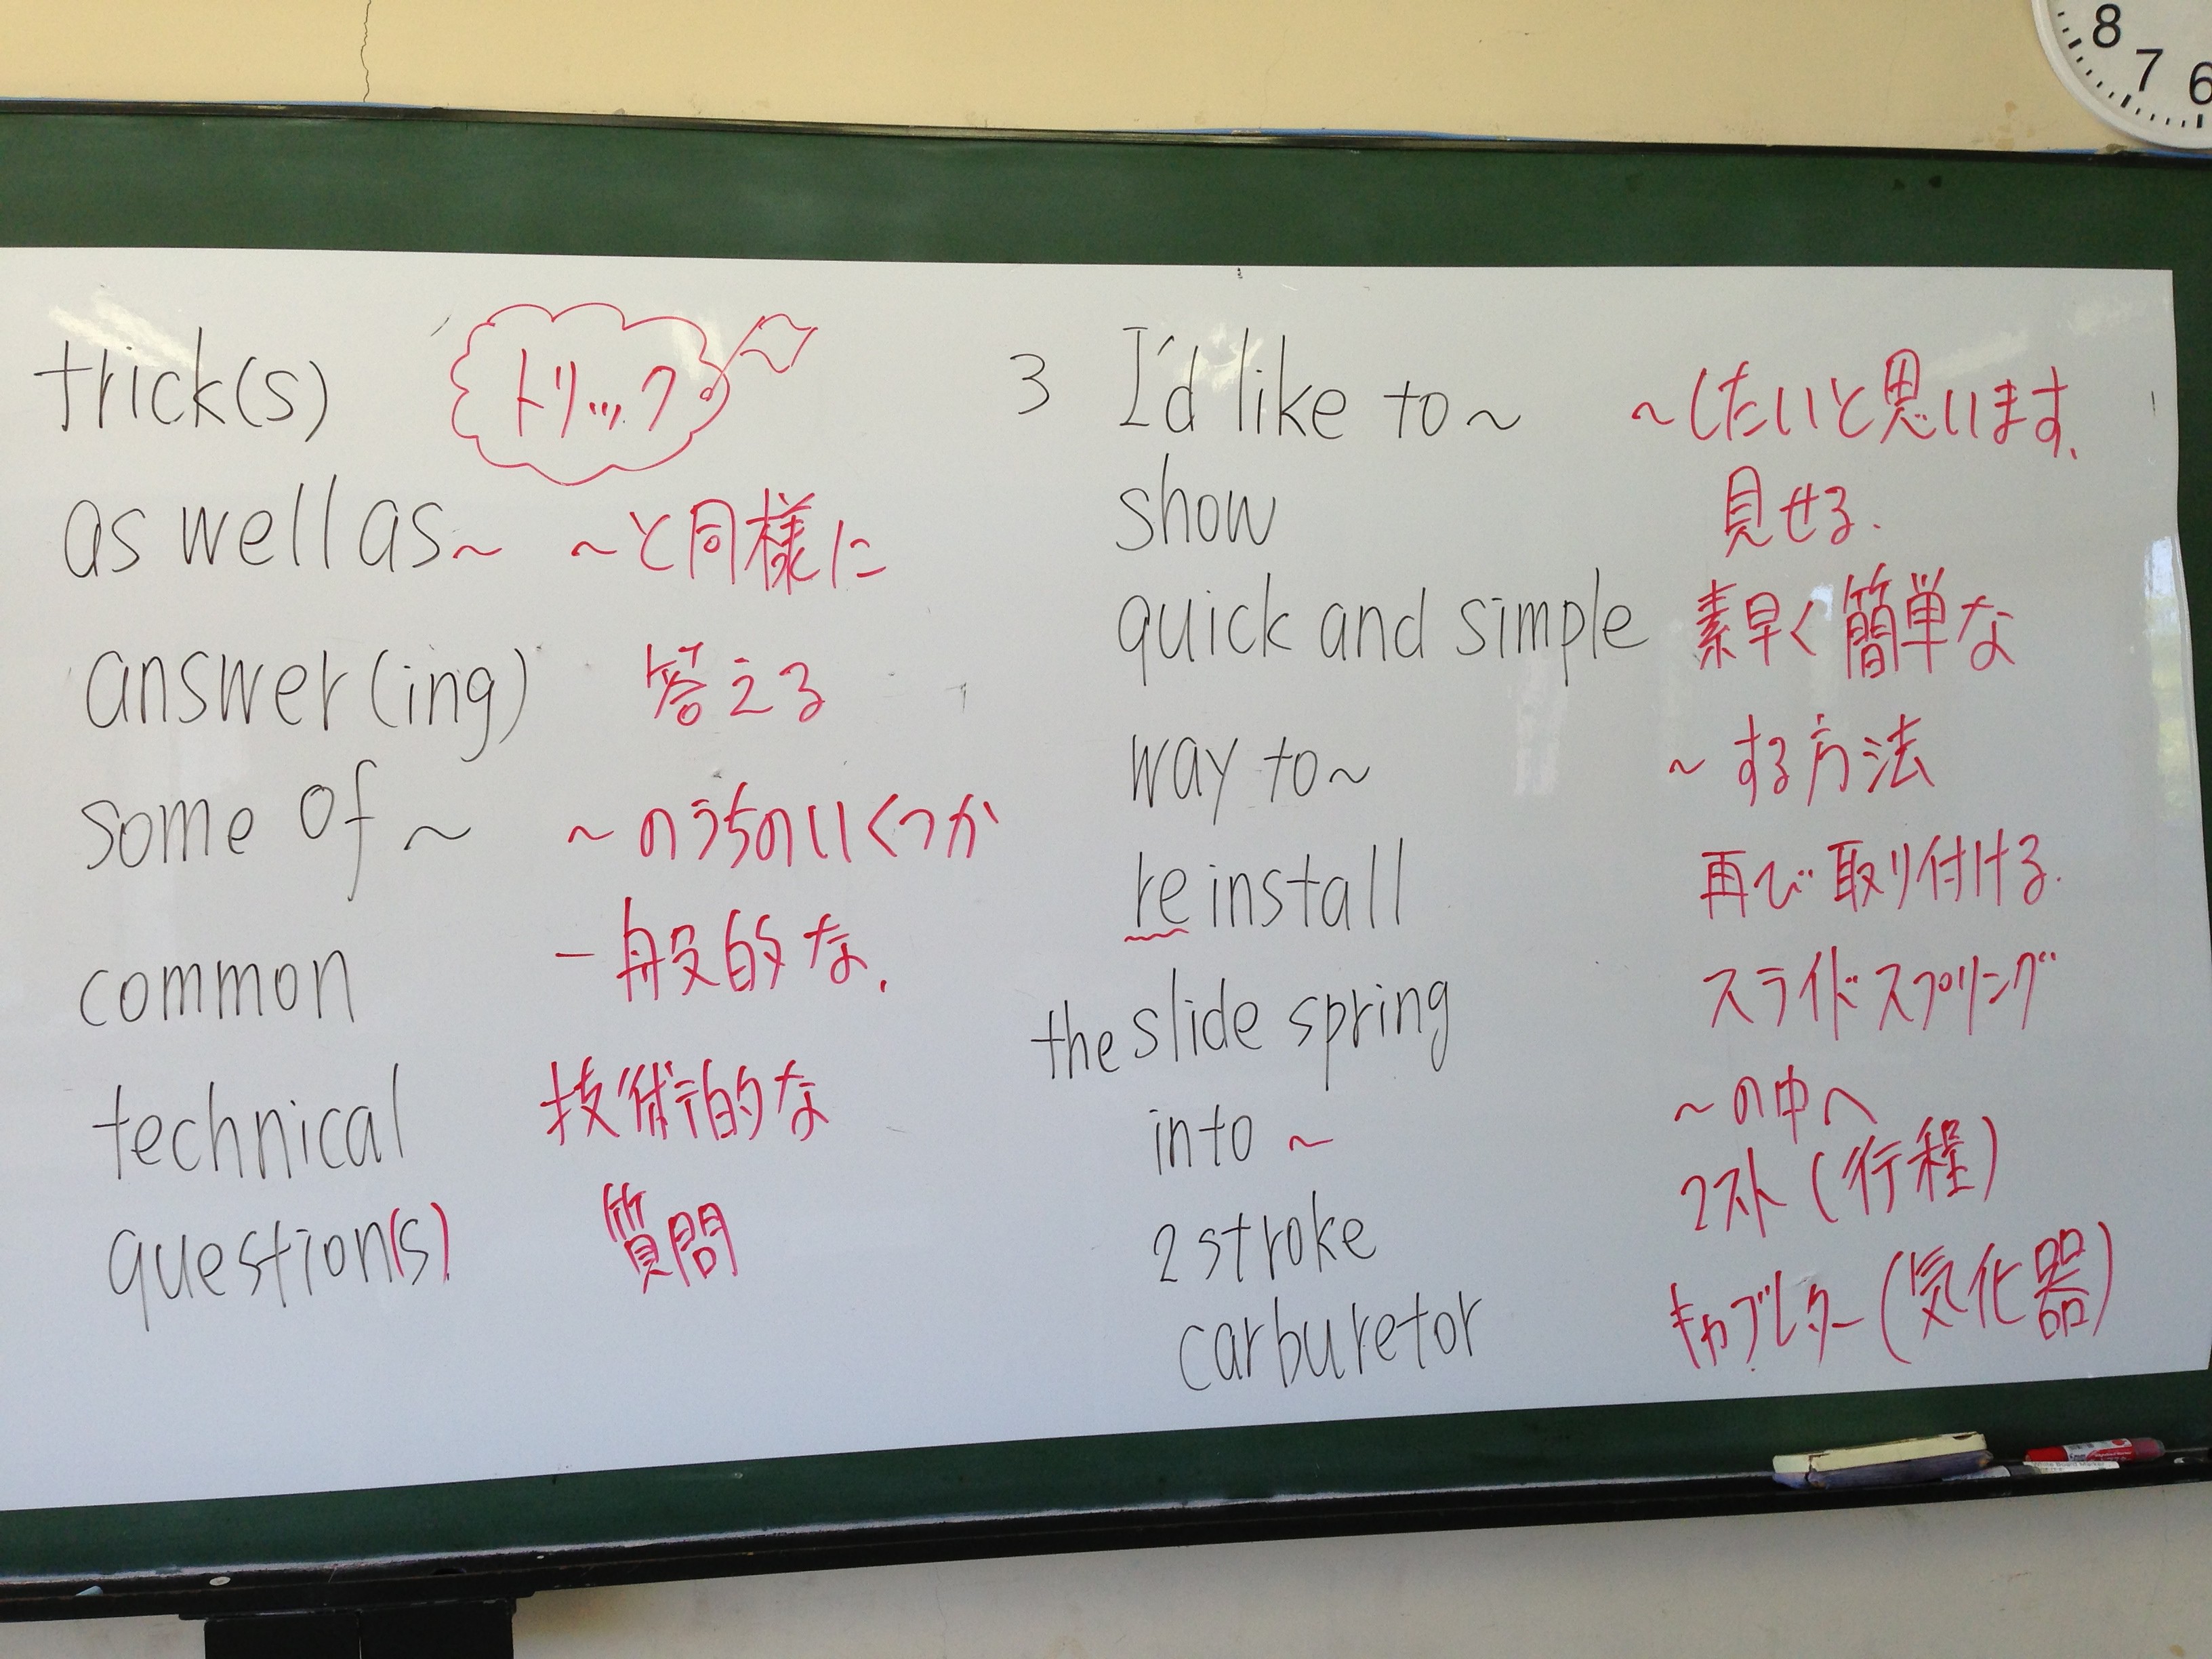 trick(s) トリック
as well as~ ~と同様に
answer(ing) 答える
some of ~ ~のうちのいくつか
common 一般的な.
technical 技術的な
question(s) 質問
3 I'd like to~ ~したいと思います.
show 見せる.
quick and simple 素早く簡単な
way to~ ~する方法
reinstall 再び取り付ける.
the slide spring スライドスプリング
into ~ ~の中へ
2 stroke 2スト(行程)
carburetor キャブレター(気化器)
8
7
6